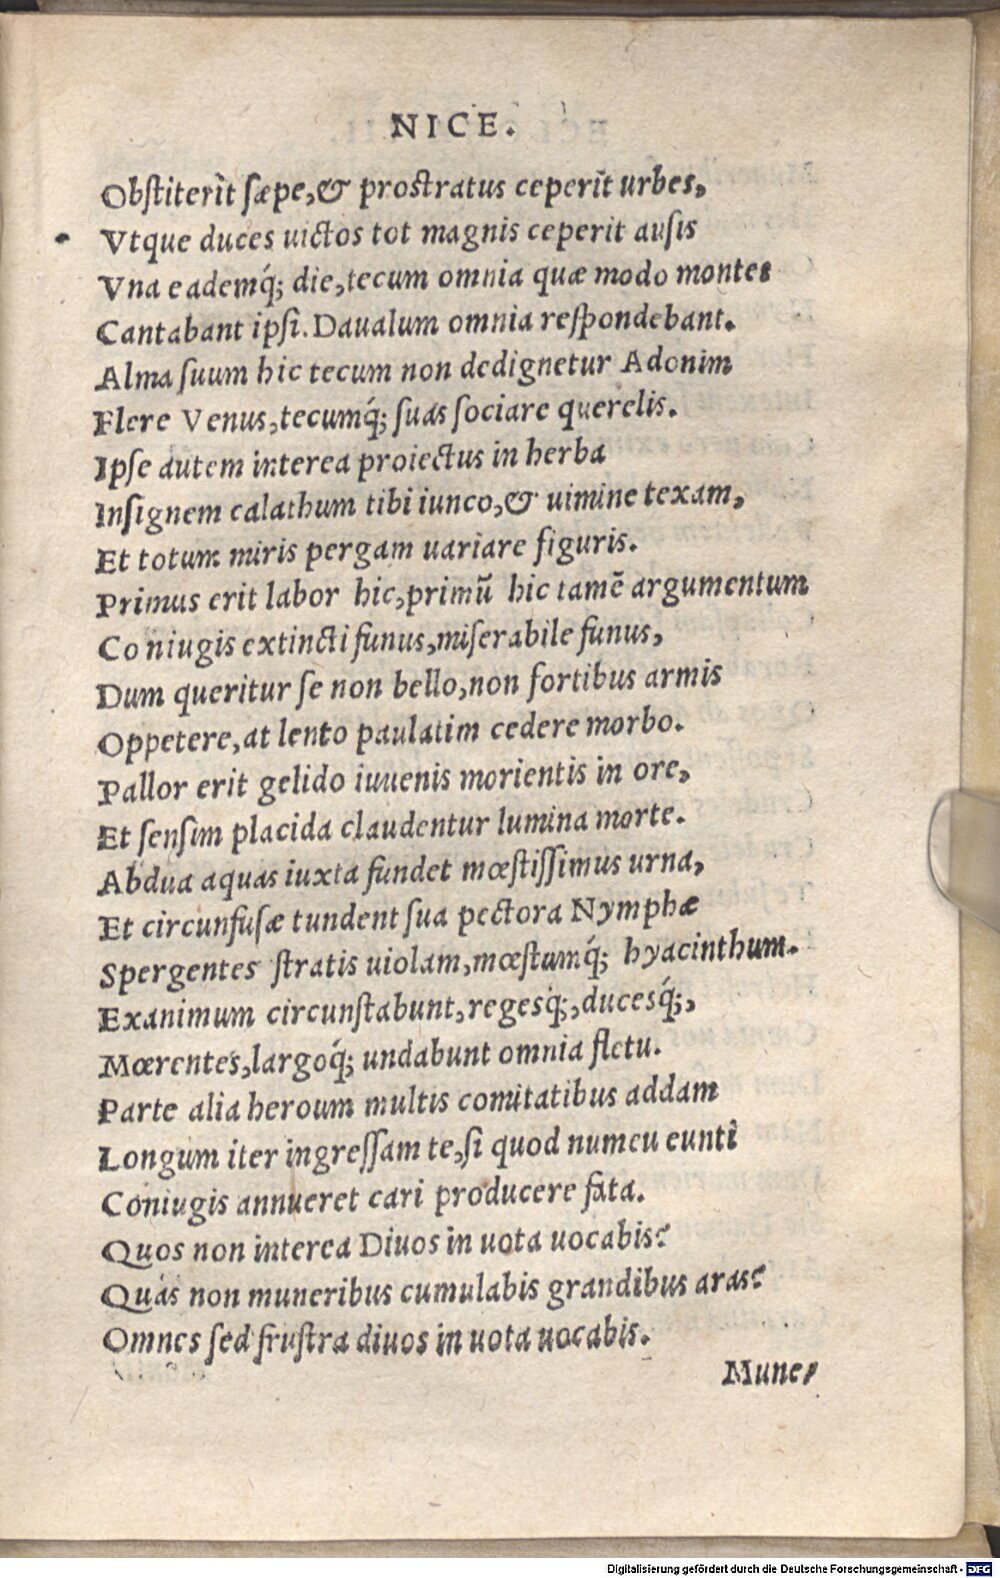 NICE.
Obſtiterìt ſæpe,& proſtratus ceperìt urbes,
Vtque duces uictos tot magnis ceperit auſis
Vna eademq́; die,tecum omnia quæ modo montes
Cantabant ipſi. Daualum omnia reſpondebant.
Alma ſuum hic tecum non dedignetur Adonim
Flere Venus,tecumq́; ſuas ſociare querelis.
Ipſe autem interea proiectus in herba
Inſignem calathum tibi iunco,& uimine texam,
Et totum miris pergam uariare figuris.
Primus erit labor hic,primū hic tamē argumentum
Coniugis extincti funus,miſerabile funus,
Dum queritur ſe non bello,non fortibus armis
Oppetere,at lento paulatim cedere morbo.
Pallor erit gelido iuuenis morientis in ore,
Et ſenſim placida claudentur lumina morte.
Abdua aquas iuxta fundet mœſtiſſimus urna,
Et circunfuſæ tundent ſua pectora Nymphæ
Spergentes ſtratis uiolam,mœſtumq́; hyacinthum.
Exanimum circunſtabunt,regesq́;,ducesq́;,
Mœrentes,largoq́; undabunt omnia fletu.
Parte alia heroum multis comitatibus addam
Longum iter ingreſſam te,ſi quod numeu eunti
Coniugis annueret cari producere fata.
Quos non interea Diuos in uota uocabis?
Quas non muneribus cumulabis grandibus aras?
Omnes ſed fruſtra diuos in uota uocabis.
Mune/
Digitalisierung gefördert durch die Deutsche Forschungsgemeinschaft - DFG